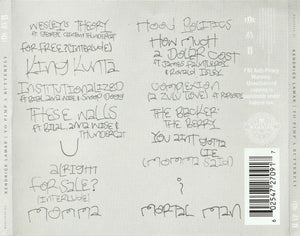 KENDRICK LAMAR / TO PIMP A BUTTERFLY
WESLEY'S THEORY
FT GEORGE CLINTON THUNDERCAT
FOR FREE? (INTERLUDE)
KING KUNTA
INSTITUTIONALIZED
FT BILAL, ANNA WISE & SNOOP DOGG
THESE WALLS
FT BILAL, ANNA WISE & THUNDERCAT
U
ALRIGHT
FOR SALE?
(INTERLUDE)
MOMMA
HOOD POLITICS
HOW MUCH
A DOLLAR COST
FT JAMES FAUNTLEROY
& RONALD ISLEY
COMPLEXION
(A ZULU LOVE) FT RAPSODY
THE BLACKER
THE BERRY
YOU AIN'T GOTTA
LIE
(MOMMA SAID)
i
MORTAL MAN
FBI Anti-Piracy
Warning:
6 02547 27091 7